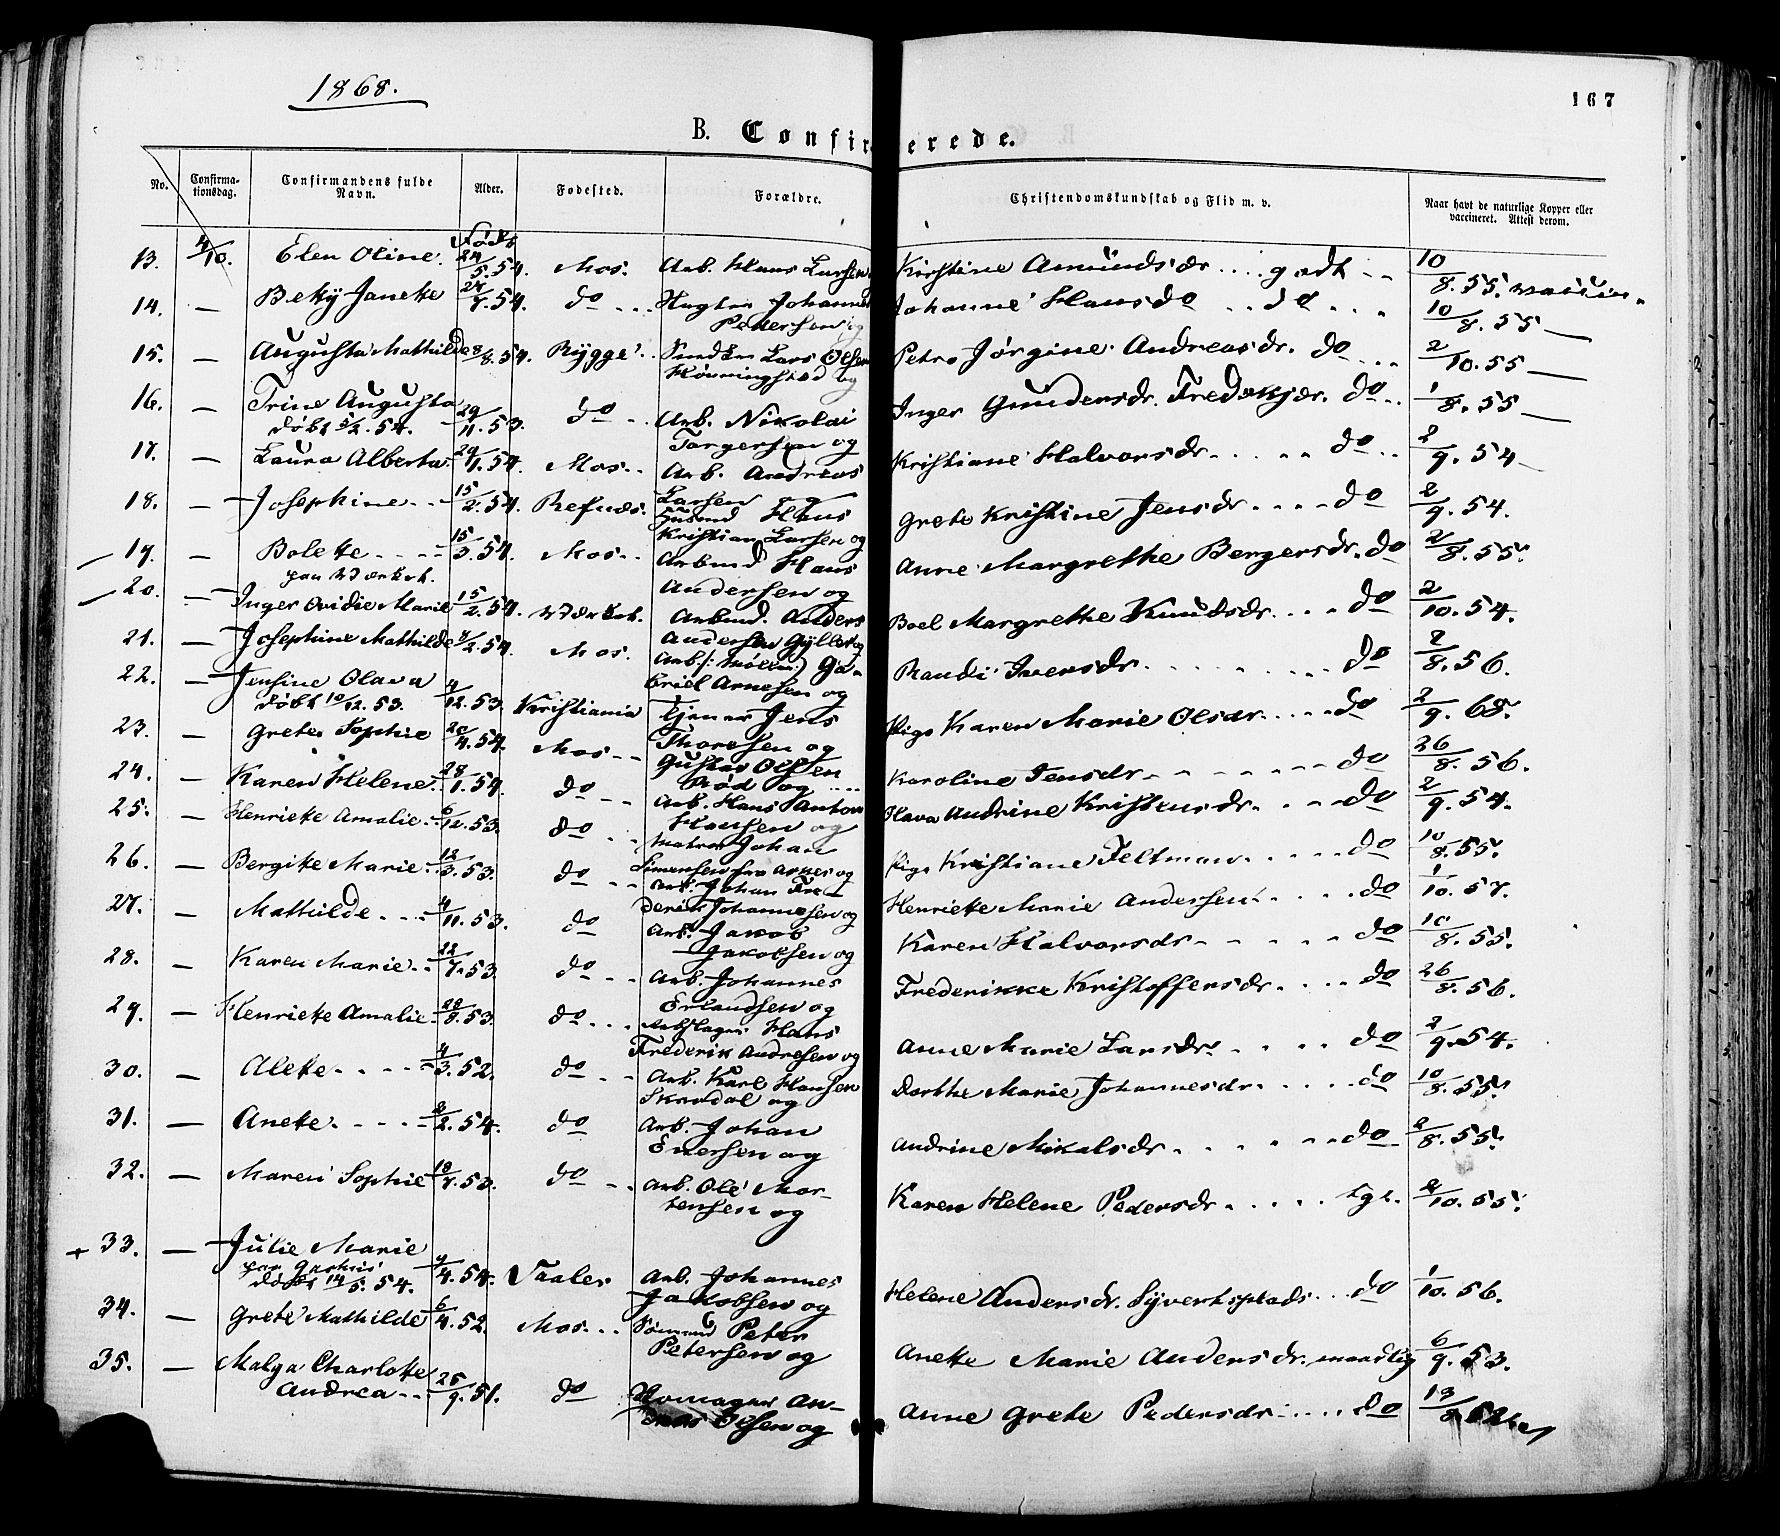 1868.
167
B. Confir erede.
No.
Confirma-
tionsdag.
Confirmandens fulde
Navn.
Alder.
Fødested.
Forældre.
Christendomskundskab og Flid m. v.
Naar havt de naturlige Kopper eller
vaccineret. Attest derom.
Født
13. 4/10. Elen Oline. 24/5.54. Mos. Arb. Hans Larsen Kirstine Amündsdr .... godt -- 10/8.55. vaccin.
14. — Betzy Janette 27/7.54. do ... Johannes Johanne Hansdr .. do .... 10/8.55 —
Petersen og
15. — Augusta Mathilde 8/8.54. Rygge .. Lars Olsen Petra Jørgine Andreasdr. do ... 2/10.55 —
og
16. — Trine Augusta 29/11.53. do .. Arb. Nikolai Inger Gundersdr. do .. 1/8.55 —
døbt 5/2.54.
Torgersen og
17. — Laura Alberta. 29/1.54. Mos.. Arb. Andreas Kristiane Halvorsdr. .... do .. 2/9.54
Larsen og
18. — Josephine - - 15/2.54. Refnæs. Hans Grete Kristine Jensdr .... do 2/9.54.
Kristian Larsen og
19. — Bolette - - - 15/3.54. Mos.. Arbmd Hans Anne Margrethe Bergersdr. do 2/8.55.
paa Værket.
Andersen og
20. — Inger Ovidie Marie 15/2.54. Værket. Arbmd. Anders Boel Margrethe Knudsdr. ... do 2/10.54.
Andersen
21. — Josephine Mathilde 4/2.54. Mos. Arb. Ga- Randi Iversdr. ..... do 2/8.56.
briel Arnesen og
22. — Jensine Olava 4/12.53. Kristiania Tjener Jens Pige Karen Marie Olsdr. ... do 2/9.68.
døbt 10/12.53.
Thoresen og
23. — Grete Sophie 20/4.54. Mos -- Gustav Olsen Karoline Jensdr. - - - do 26/8.56.
Rød og ....
24. — Karen Helene. 28/1.54. do -- Arb. Hans Anton Olava Andrine Kristensdr. ... do 2/9.54.
Hansen og
25. — Henriette Amalie. 6/12.53. do .. Matros Johan Pige Kristiane Feltman ..... do 10/8.55.
Simensen fra og
26. — Bergitte Marie. 12/3.53. do -- Arb. Johan Fre- Henriette Marie Andersen. ... do 1/10.57.
derik Johannesen og
27. — Mathilde. - - 4/11.53. do Arb. Jakob Karen Halvorsdr - - - - do 10/8.55.
Jakobsen og
28. — Karen Marie. - 22/7.53. do -- Arb. Johannes Frederikke Kristoffersdr. ... do 26/8.56.
Erlandsen og
29. — Henriette Amalie. 28/8.53. do ... Hans Anne Marie Larsdr. .... do 2/9.54.
Frederik Andresen og
30. — Alette. - - - 4/3.52. do -- Arb. Karl Hansen Dorthe Marie Johannesdr. .... do 10/8.55.
Skredal og
31. — Anette. - - - 8/2.54. do Arb. Johan Andrine Mikalsdr. .... do 2/8.55.
Evensen og
32. — Maren Sophie 18/7.53. do -- Arb. Ole Mor- Karen Helene Pedersdr. .... tgl. 2/10.55.
tensen og
+ 33. — Julie Marie 4/4.54. Vaaler Arb. Johannes Helene Andersdr. Syvertsplads ... do 1/10.56.
døbt 14/5.54.
Jakobsen og
34. — Grete Mathilde 6/4.52. Mos... Sømand Peter Anette Marie Andersdr. maadlig 6/9.53.
Petersen og
35. — Malga Charlotte
Andrea - - 25/9.51. do An- Anne Grete Pedersdr. .... do 13/8.
Olsen og